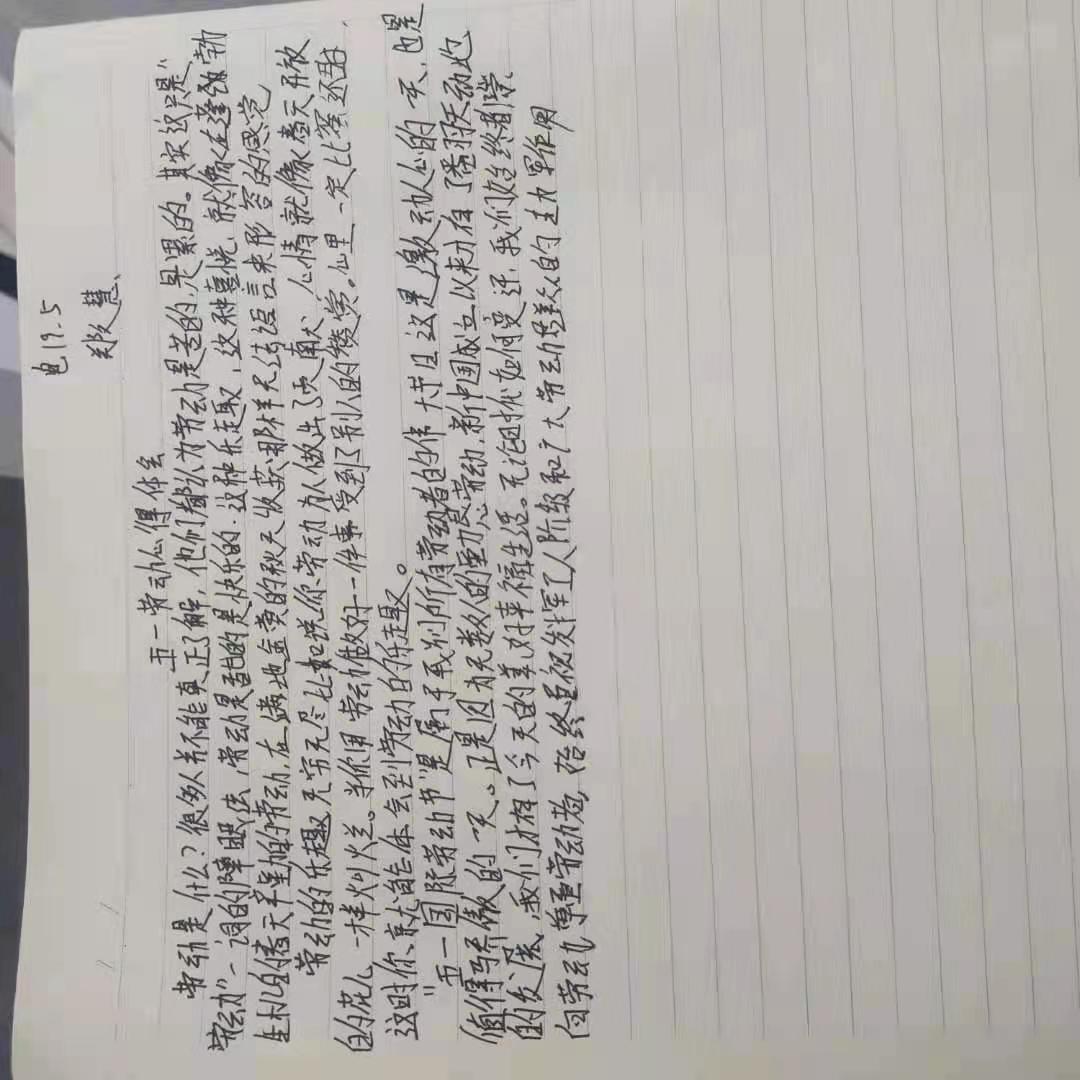 电19.5
郑慧
五一劳动心得体会
劳动是什么?很多人并不能真正了解,他们都认为劳动是苦的,是累的。其实这只是“
劳动”一词的障眼法,劳动是甜的是快乐的.这种乐趣,这种喜悦,就像在蓬勃
生机的春天辛勤的劳动,在满地金黄的秋天收获那样无法语言来形容的感觉
劳动的乐趣无穷无尽比如说你劳动为人做出了贡献、心情就像春天开放
的花儿一样灿烂。当你用劳动做好一件事受到了别人的赞赏。心里一定比蜜还甜
这时你就能体会到劳动的乐趣。
“五一国际劳动节”是属于我们所有劳动者的伟大节日这是激动人心的一天,也是
值得骄傲的一天。正是因为无数人的辛劳动,新中国成立以来才有了翻天动地
的发展,我们才有了今天的美好幸福生活。无论时代如何变迁,我们始终着
向劳动,尊重劳动者,始终重视发挥工人阶级和广大劳动群众的主力军作用